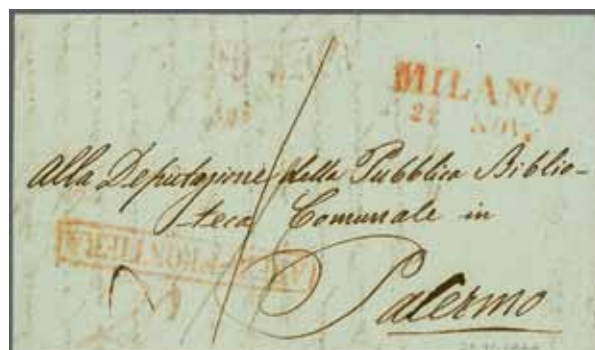 MILANO
21 NOV.
Alla Deputazione della Pubblica Biblio-
teca Comunale in
Palermo